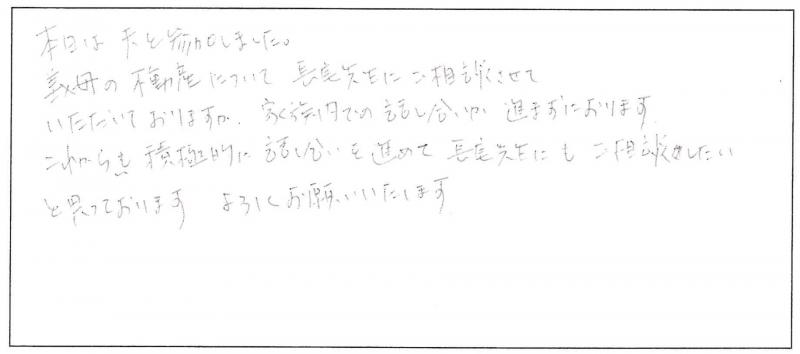 本日は 夫と参加しました。
義母の不動産について 長家先生にご相談させて
いただいておりますが、家族内での話し合いが 進まずにおります
これからも 積極的に話し合いを進めて 長家先生にも ご相談をしたい
と思っております よろしくお願いいたします